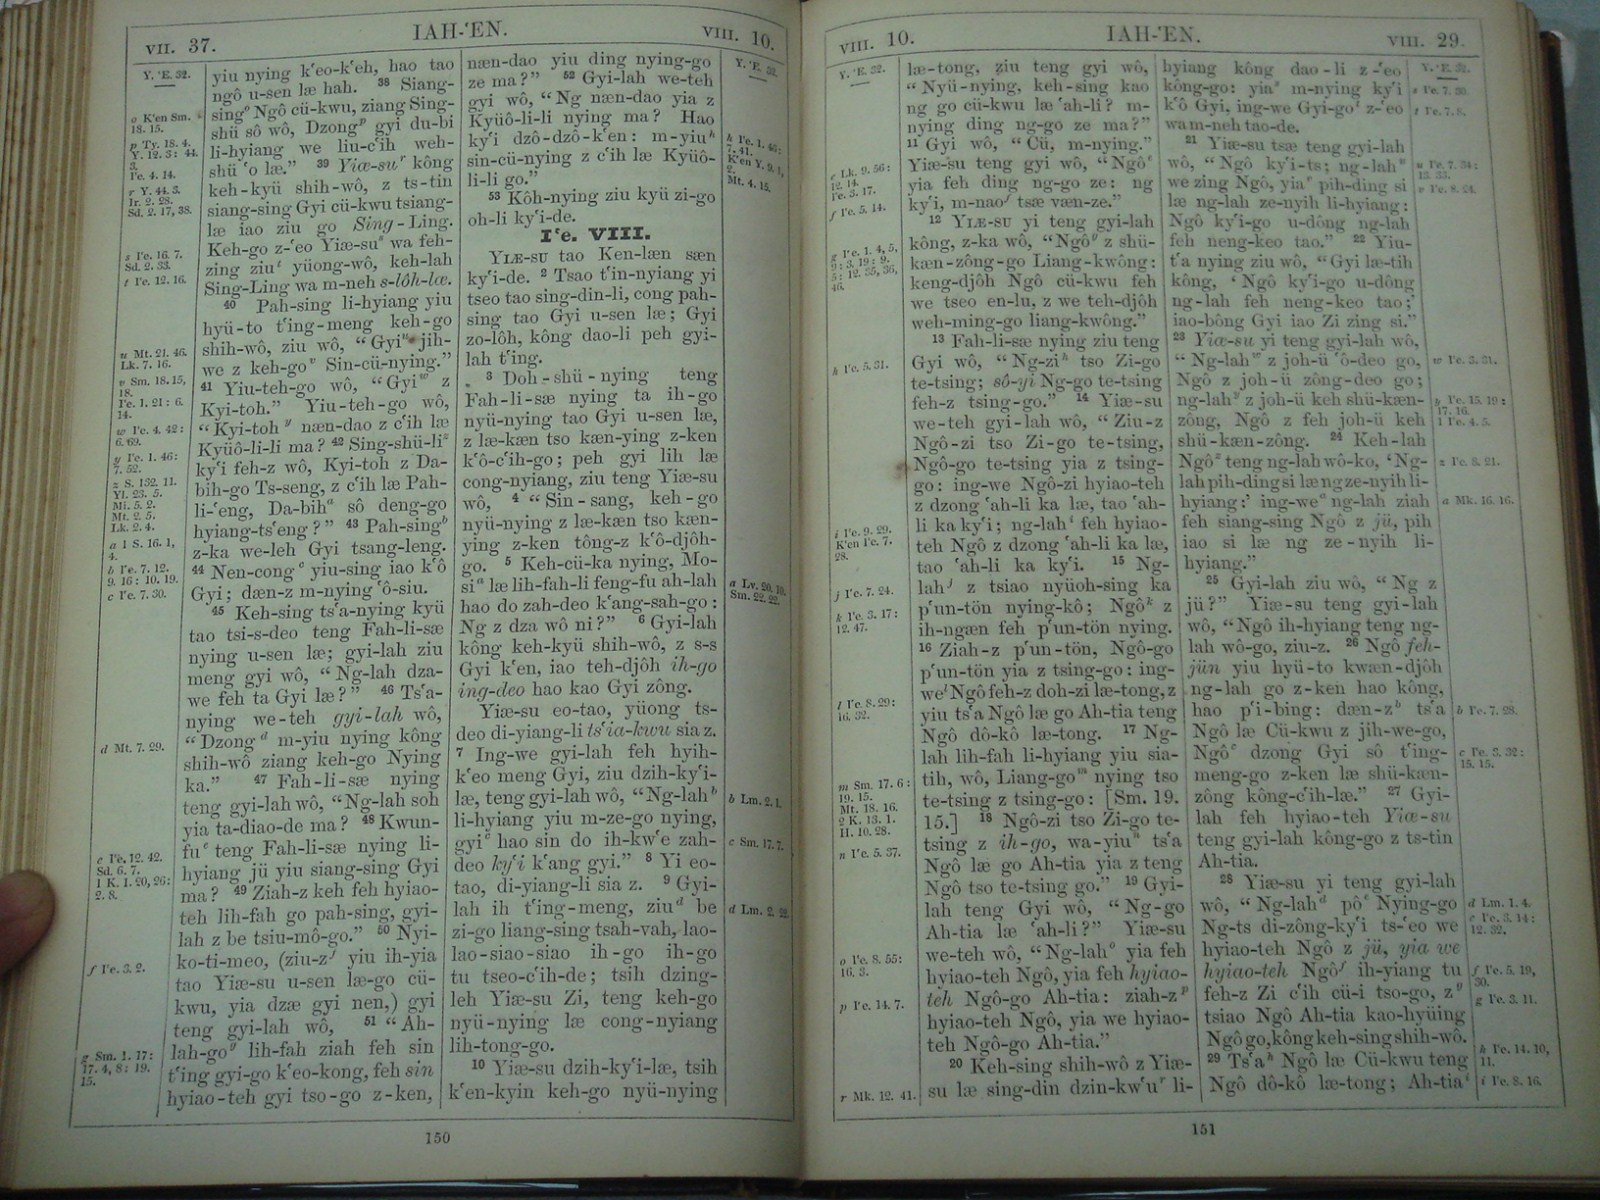 VII. 37.
IAH-'EN.
VIII. 10.
Y. 'E. 32.
o K'en Sm.
18. 15.
p Ty. 18. 4.
Y. 12. 3: 44.
3.
I'e. 4. 14.
r Y. 44. 3.
Ir. 2. 28.
Sd. 2. 17, 38.
s I'e. 16. 7.
Sd. 2. 33.
t I'e. 12. 16.
u Mt. 21. 46.
Lk. 7. 16.
v Sm. 18. 15,
18.
I'e. 1. 21: 6.
14.
w I'e. 4. 42:
6. 69.
y I'e. 1. 46:
7. 52.
z S. 132. 11.
Yl. 23. 5.
Mi. 5. 2.
Mt. 2. 5.
Lk. 2. 4.
a 1 S. 16. 1,
4.
b I'e. 7. 12.
9. 16: 10. 19.
c I'e. 7. 30.
d Mt. 7. 29.
e I'e. 12. 42.
Sd. 6. 7.
1 K. 1. 20, 26:
2. 8.
f I'e. 3. 2.
g Sm. 1. 17:
17. 4, 8: 19.
15.
yiu nying k'eo-k'eh, hao tao
ngô u-sen læ hah. 38 Siang-
sing° Ngô cü-kwu, ziang Sing-
shü sô wô, Dzongᵖ gyi du-bi
li-hyiang we liu-c'ih weh-
shü 'o læ.” 39 Yiæ-suʳ kông
keh-kyü shih-wô, z ts-tin
siang-sing Gyi cü-kwu tsiang-
læ iao ziu go Sing-Ling.
Keh-go z-'eo Yiæ-suˢ wa feh-
zing ziuᵗ yüong-wô, keh-lah
Sing-Ling wa m-neh s-lôh-læ.
40 Pah-sing li-hyiang yiu
hyü-to t'ing-meng keh-go
shih-wô, ziu wô, “Gyiᵘ jih-
we z keh-goᵛ Sin-cü-nying.”
41 Yiu-teh-go wô, “Gyiʷ z
Kyi-toh.” Yiu-teh-go wô,
“Kyi-tohʸ næn-dao z c'ih læ
Kyüô-li-li ma? 42 Sing-shü-liᶻ
ky'i feh-z wô, Kyi-toh z Da-
bih-go Ts-seng, z c'ih læ Pah-
li-'eng, Da-bihᵃ sô deng-go
hyiang-ts'eng?” 43 Pah-singᵇ
z-ka we-leh Gyi tsang-leng.
44 Nen-congᶜ yiu-sing iao k'ô
Gyi; dæn-z m-nying 'ô-siu.
45 Keh-sing ts'a-nying kyü
tao tsi-s-deo teng Fah-li-sæ
nying u-sen læ; gyi-lah ziu
meng gyi wô, “Ng-lah dza-
we feh ta Gyi læ?” 46 Ts'a-
nying we-teh gyi-lah wô,
“Dzongᵈ m-yiu nying kông
shih-wô ziang keh-go Nying
ka.” 47 Fah-li-sæ nying
teng gyi-lah wô, “Ng-lah soh
yia ta-diao-de ma? 48 Kwun-
fuᵉ teng Fah-li-sæ nying li-
hyiang jü yiu siang-sing Gyi
ma? 49 Ziah-z keh feh hyiao-
teh lih-fah go pah-sing, gyi-
lah z be tsiu-mô-go.” 50 Nyi-
ko-ti-meo, (ziu-zᶠ yiu ih-yia
tao Yiæ-su u-sen læ-go cü-
kwu, yia dzæ gyi nen,) gyi
teng gyi-lah wô, 51 “Ah-
lah-goᵍ lih-fah ziah feh sin
t'ing gyi-go k'eo-kong, feh sin
hyiao-teh gyi tso-go z-ken,
næn-dao yiu ding nying-go
ze ma?” 52 Gyi-lah we-teh
gyi wô, “Ng næn-dao yia z
Kyüô-li-li nying ma? Hao
ky'i dzô-dzô-k'en: m-yiuʰ
sin-cü-nying z c'ih læ Kyüô-
li-li go.”
53 Kôh-nying ziu kyü zi-go
oh-li ky'i-de.
I'e. VIII.
YIÆ-SU tao Ken-læn sæn
ky'i-de. 2 Tsao t'in-nyiang yi
tseo tao sing-din-li, cong pah-
sing tao Gyi u-sen læ; Gyi
zo-lôh, kông dao-li peh gyi-
lah t'ing.
3 Doh-shü-nying teng
Fah-li-sæ nying ta ih-go
nyü-nying tao Gyi u-sen læ,
z læ-kæn tso kæn-ying z-ken
k'ô-c'ih-go; peh gyi lih læ
cong-nyiang, ziu teng Yiæ-su
wô, 4 “Sin-sang, keh-go
nyü-nying z læ-kæn tso kæn-
ying z-ken tông-z k'ô-djôh-
go. 5 Keh-cü-ka nying, Mo-
siᵃ læ lih-fah-li feng-fu ah-lah
hao do zah-deo k'ang-sah-go:
Ng z dza wô ni?” 6 Gyi-lah
kông keh-kyü shih-wô, z s-s
Gyi k'en, iao teh-djôh ih-go
ing-deo hao kao Gyi zông.
Yiæ-su eo-tao, yüong ts-
deo di-yiang-li ts'ia-kwu sia z.
7 Ing-we gyi-lah feh hyih-
k'eo meng Gyi, ziu dzih-ky'i-
læ, teng gyi-lah wô, “Ng-lahᵇ
li-hyiang yiu m-ze-go nying,
gyiᶜ hao sin do ih-kw'e zah-
deo ky'i k'ang gyi.” 8 Yi eo-
tao, di-yiang-li sia z. 9 Gyi-
lah ih t'ing-meng, ziuᵈ be
zi-go liang-sing tsah-vah, lao-
lao-siao-siao ih-go ih-go
tu tseo-c'ih-de; tsih dzing-
leh Yiæ-su Zi, teng keh-go
nyü-nying læ cong-nyiang
lih-tong-go.
10 Yiæ-su dzih-ky'i-læ, tsih
k'en-kyin keh-go nyü-nying
Y. 'E. 32.
h I'e. 1. 46:
7. 41.
K'en Y. 9. 1,
2.
Mt. 4. 15.
a Lv. 20. 10.
Sm. 22. 22.
b Lm. 2. 1.
c Sm. 17. 7.
d Lm. 2. 22.
150
VIII. 10.
IAH-'EN.
VIII. 29.
Y. 'E. 32.
e Lk. 9. 56:
12. 14.
I'e. 3. 17.
f I'e. 5. 14.
g I'e. 1. 4, 5,
9: 3. 19: 9.
5: 12. 35, 36,
46.
h I'e. 5. 31.
i I'e. 9. 29.
K'en I'e. 7.
28.
j I'e. 7. 24.
k I'e. 3. 17:
12. 47.
l I'e. 8. 29:
16. 32.
m Sm. 17. 6:
19. 15.
Mt. 18. 16.
2 K. 13. 1.
H. 10. 28.
n I'e. 5. 37.
o I'e. 8. 55:
16. 3.
p I'e. 14. 7.
r Mk. 12. 41.
læ-tong, ziu teng gyi wô,
“Nyü-nying, keh-sing kao
ng go cü-kwu læ 'ah-li? m-
nying ding ng-go ze ma?”
11 Gyi wô, “Cü, m-nying.”
Yiæ-su teng gyi wô, “Ngôᵉ
yia feh ding ng-go ze: ng
ky'i, m-naoᶠ tsæ væn-ze.”
12 YIÆ-SU yi teng gyi-lah
kông, z-ka wô, “Ngôᵍ z shü-
kæn-zông-go Liang-kwông:
keng-djôh Ngô cü-kwu feh
we tseo en-lu, z we teh-djôh
weh-ming-go liang-kwông.”
13 Fah-li-sæ nying ziu teng
Gyi wô, “Ng-ziʰ tso Zi-go
te-tsing; sô-yi Ng-go te-tsing
feh-z tsing-go.” 14 Yiæ-su
we-teh gyi-lah wô, “Ziu-z
Ngô-zi tso Zi-go te-tsing,
Ngô-go te-tsing yia z tsing-
go: ing-we Ngô-zi hyiao-teh
z dzong 'ah-li ka læ, tao 'ah-
li ka ky'i; ng-lahⁱ feh hyiao-
teh Ngô z dzong 'ah-li ka læ,
tao 'ah-li ka ky'i. 15 Ng-
lahʲ z tsiao nyüoh-sing ka
p'un-tön nying-kô; Ngôᵏ z
ih-ngæn feh p'un-tön nying.
16 Ziah-z p'un-tön, Ngô-go
p'un-tön yia z tsing-go: ing-
weˡ Ngô feh-z doh-zi læ-tong, z
yiu ts'a Ngô læ go Ah-tia teng
Ngô dô-kô læ-tong. 17 Ng-
lah lih-fah li-hyiang yiu sia-
tih, wô, Liang-goᵐ nying tso
te-tsing z tsing-go: [Sm. 19.
15.] 18 Ngô-zi tso Zi-go te-
tsing z ih-go, wa-yiuⁿ ts'a
Ngô læ go Ah-tia yia z teng
Ngô tso te-tsing go.” 19 Gyi-
lah teng Gyi wô, “Ng-go
Ah-tia læ 'ah-li?” Yiæ-su
we-teh wô, “Ng-lah° yia feh
hyiao-teh Ngô, yia feh hyiao-
teh Ngô-go Ah-tia: ziah-zᵖ
hyiao-teh Ngô, yia we hyiao-
teh Ngô-go Ah-tia.”
20 Keh-sing shih-wô z Yiæ-
su læ sing-din dzin-kw'uʳ li-
hyiang kông dao-li z-'eo
kông-go: yiaˢ m-nying ky'i
k'ô Gyi, ing-we Gyi-goᵗ z-'eo
wa m-neh tao-de.
21 Yiæ-su tsæ teng gyi-lah
wô, “Ngô ky'i-ts; ng-lahᵘ
we zing Ngô, yiaᵛ pih-ding si
læ ng-lah ze-nyih li-hyiang:
Ngô ky'i-go u-dông ng-lah
feh neng-keo tao.” 22 Yiu-
t'a nying ziu wô, “Gyi læ-tih
kông, ‘Ngô ky'i-go u-dông
ng-lah feh neng-keo tao;’
iao-bông Gyi iao Zi zing si.”
23 Yiæ-su yi teng gyi-lah wô,
“Ng-lahʷ z joh-ü 'ô-deo go,
Ngô z joh-ü zông-deo go;
ng-lahʸ z joh-ü keh shü-kæn-
zông, Ngô z feh joh-ü keh
shü-kæn-zông. 24 Keh-lah
Ngôᶻ teng ng-lah wô-ko, ‘Ng-
lah pih-ding si læ ng ze-nyih li-
hyiang:’ ing-weᵃ ng-lah ziah
feh siang-sing Ngô z jü, pih
iao si læ ng ze-nyih li-
hyiang.”
25 Gyi-lah ziu wô, “Ng z
jü?” Yiæ-su teng gyi-lah
wô, “Ngô ih-hyiang teng ng-
lah wô-go, ziu-z. 26 Ngô feh-
jün yiu hyü-to kwæn-djôh
ng-lah go z-ken hao kông,
hao p'i-bing: dæn-zᵇ ts'a
Ngô læ Cü-kwu z jih-we-go,
Ngôᶜ dzong Gyi sô t'ing-
meng-go z-ken læ shü-kæn-
zông kông-c'ih-læ.” 27 Gyi-
lah feh hyiao-teh Yiæ-su
teng gyi-lah kông-go z ts-tin
Ah-tia.
28 Yiæ-su yi teng gyi-lah
wô, “Ng-lahᵈ pôᵉ Nying-go
Ng-ts di-zông-ky'i ts-'eo we
hyiao-teh Ngô z jü, yia we
hyiao-teh Ngôᶠ ih-yiang tu
feh-z Zi c'ih cü-i tso-go, zᵍ
tsiao Ngô Ah-tia kao-hyüing
Ngô go, kông keh-sing shih-wô.
29 Ts'aʰ Ngô læ Cü-kwu teng
Ngô dô-kô læ-tong; Ah-tiaⁱ
Y. 'E. 32.
s I'e. 7. 30.
t I'e. 7. 8.
u I'e. 7. 34:
13. 33.
v I'e. 8. 24.
w I'e. 3. 31.
y I'e. 15. 19:
17. 16.
1 I'e. 4. 5.
z I'e. 8. 21.
a Mk. 16. 16.
b I'e. 7. 28.
c I'e. 3. 32:
15. 15.
d Lm. 1. 4.
e I'e. 3. 14:
12. 32.
f I'e. 5. 19,
30.
g I'e. 3. 11.
h I'e. 14. 10,
11.
i I'e. 8. 16.
151